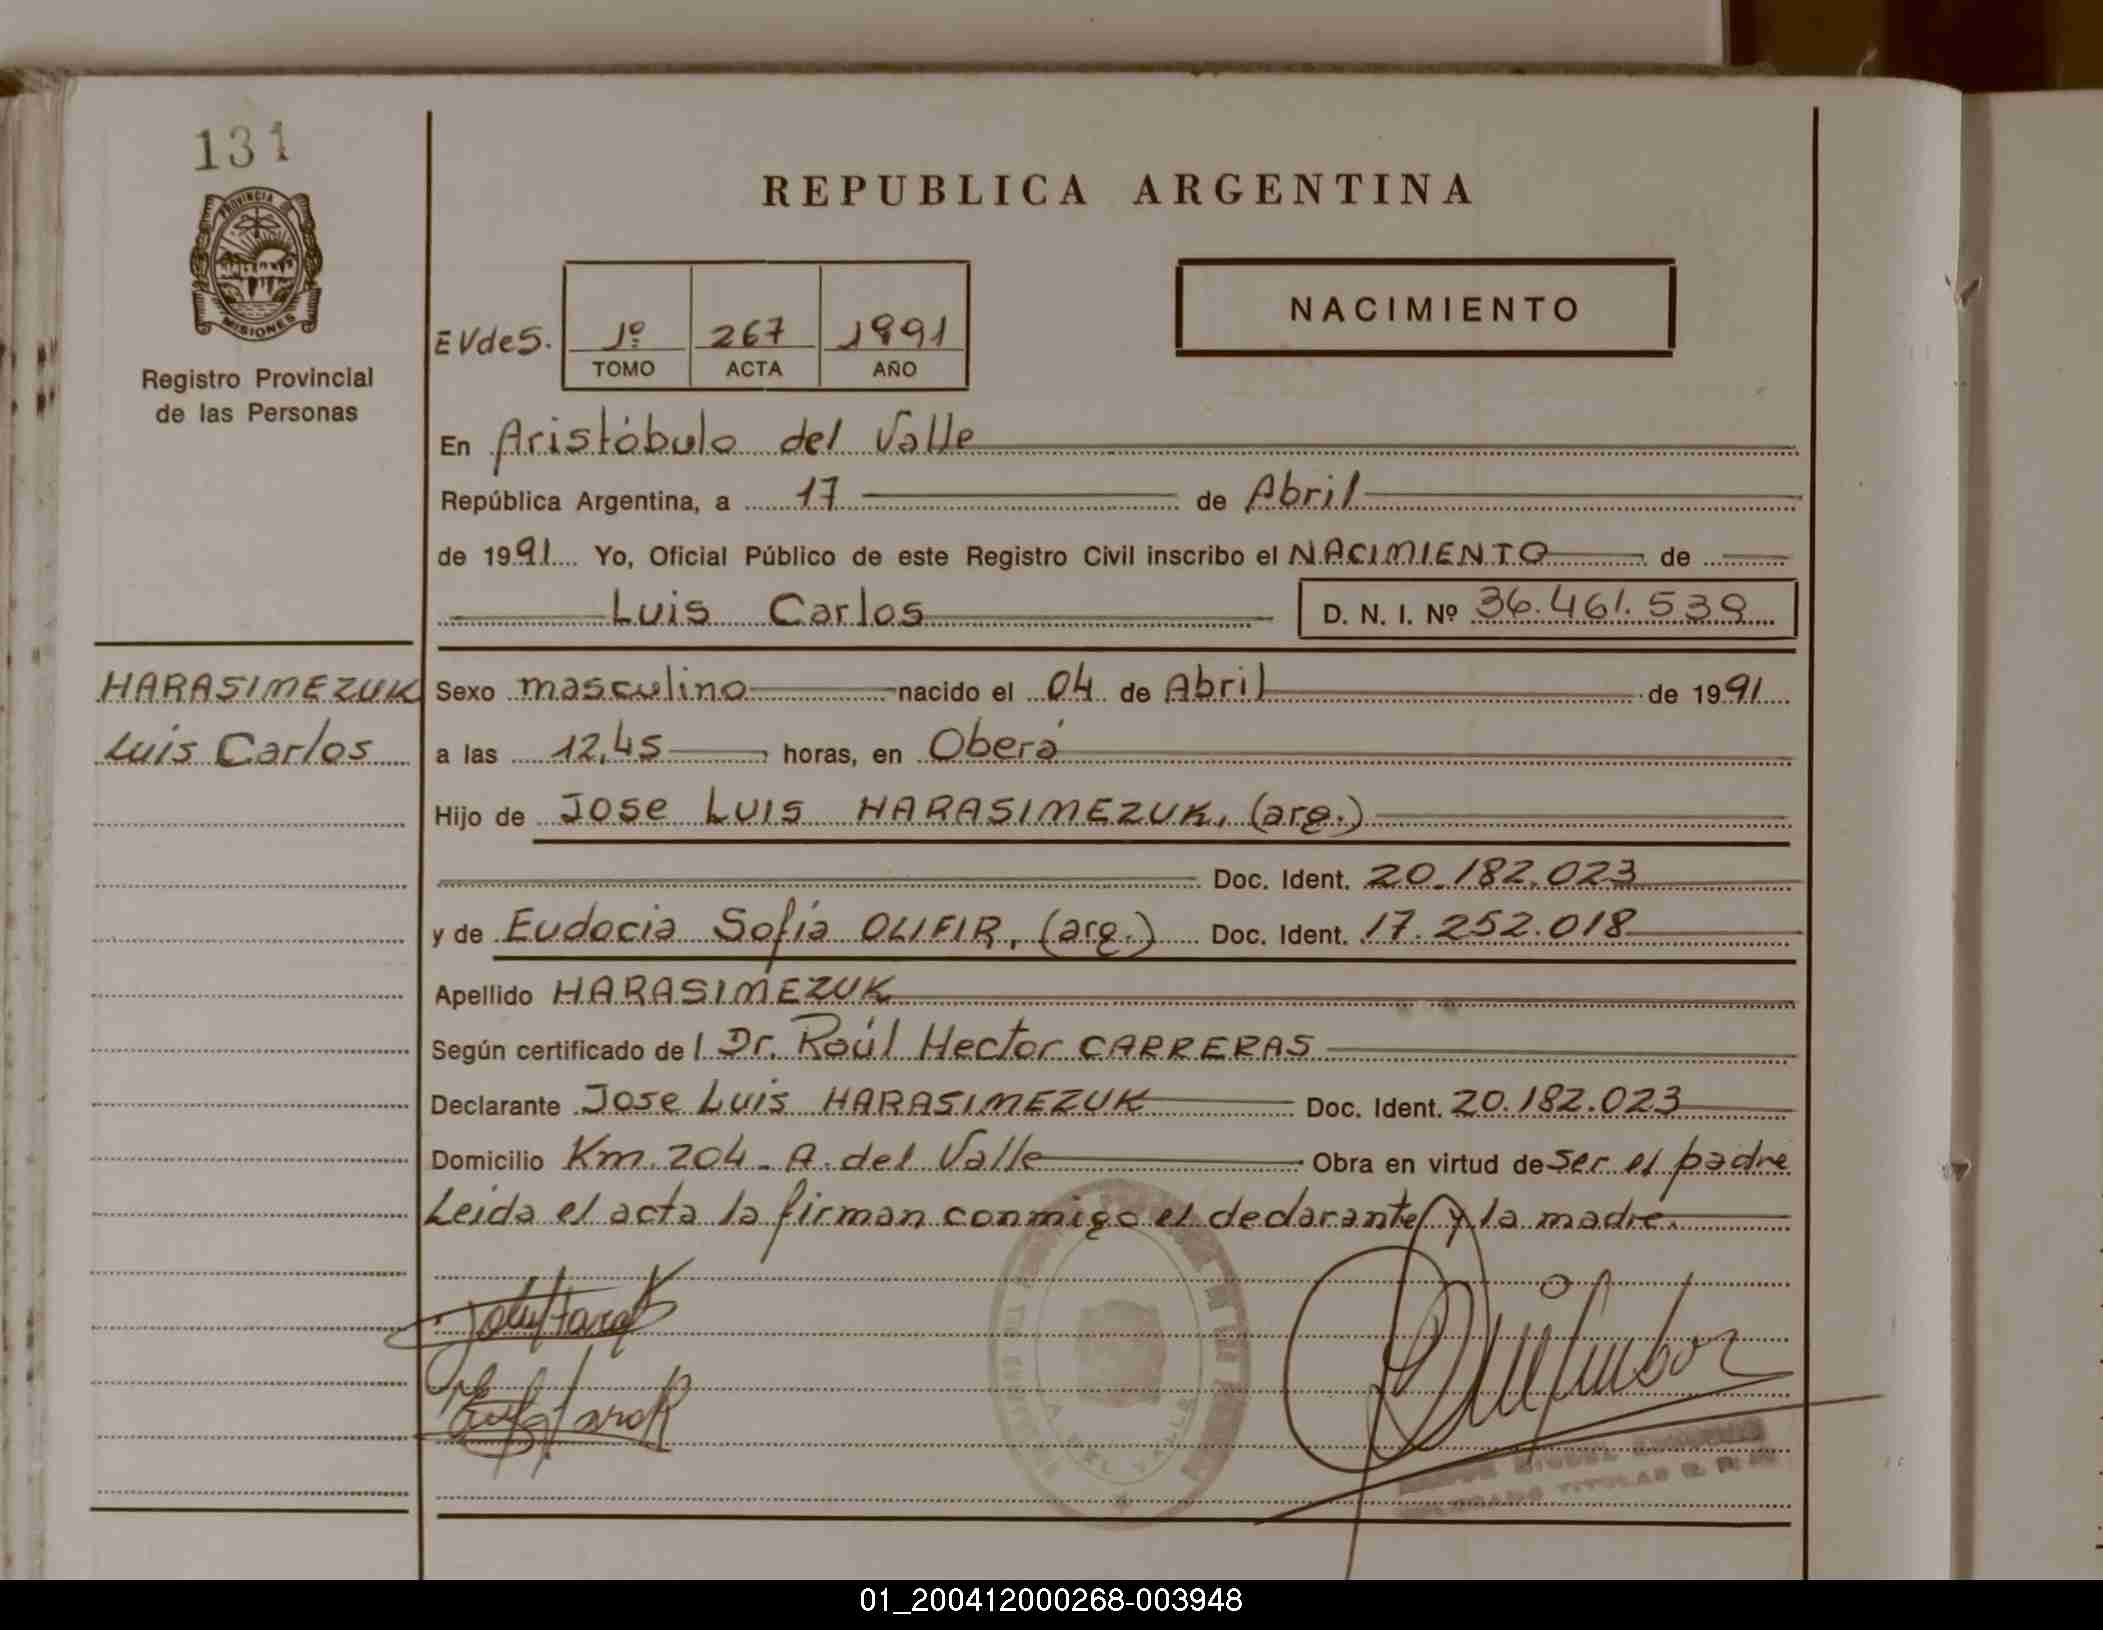 131
PROVINCIA DE
MISIONES
Registro Provincial
de las Personas
REPUBLICA ARGENTINA
NACIMIENTO
EVdeS. 1º 267 1991
TOMO ACTA AÑO
En Aristóbulo del Valle
República Argentina, a 17 de Abril
de 1991 Yo, Oficial Público de este Registro Civil inscribo el NACIMIENTO de
Luis Carlos D. N. I. Nº 36.461.539
HARASIMEZUK
Luis Carlos
Sexo masculino nacido el 04 de Abril de 1991
a las 12,45 horas, en Oberá
Hijo de Jose Luis HARASIMEZUK, (arg.)
Doc. Ident. 20.182.023
y de Eudocia Sofía OLIFIR, (arg.) Doc. Ident. 17.252.018
Apellido HARASIMEZUK
Según certificado de l Dr. Raúl Hector CARRERAS
Declarante Jose Luis HARASIMEZUK Doc. Ident. 20.182.023
Domicilio Km. 204 - A. del Valle Obra en virtud de ser el padre
Leída el acta la firman conmigo el declarante y la madre.
DEL VALLE
TITULAR
01_200412000268-003948